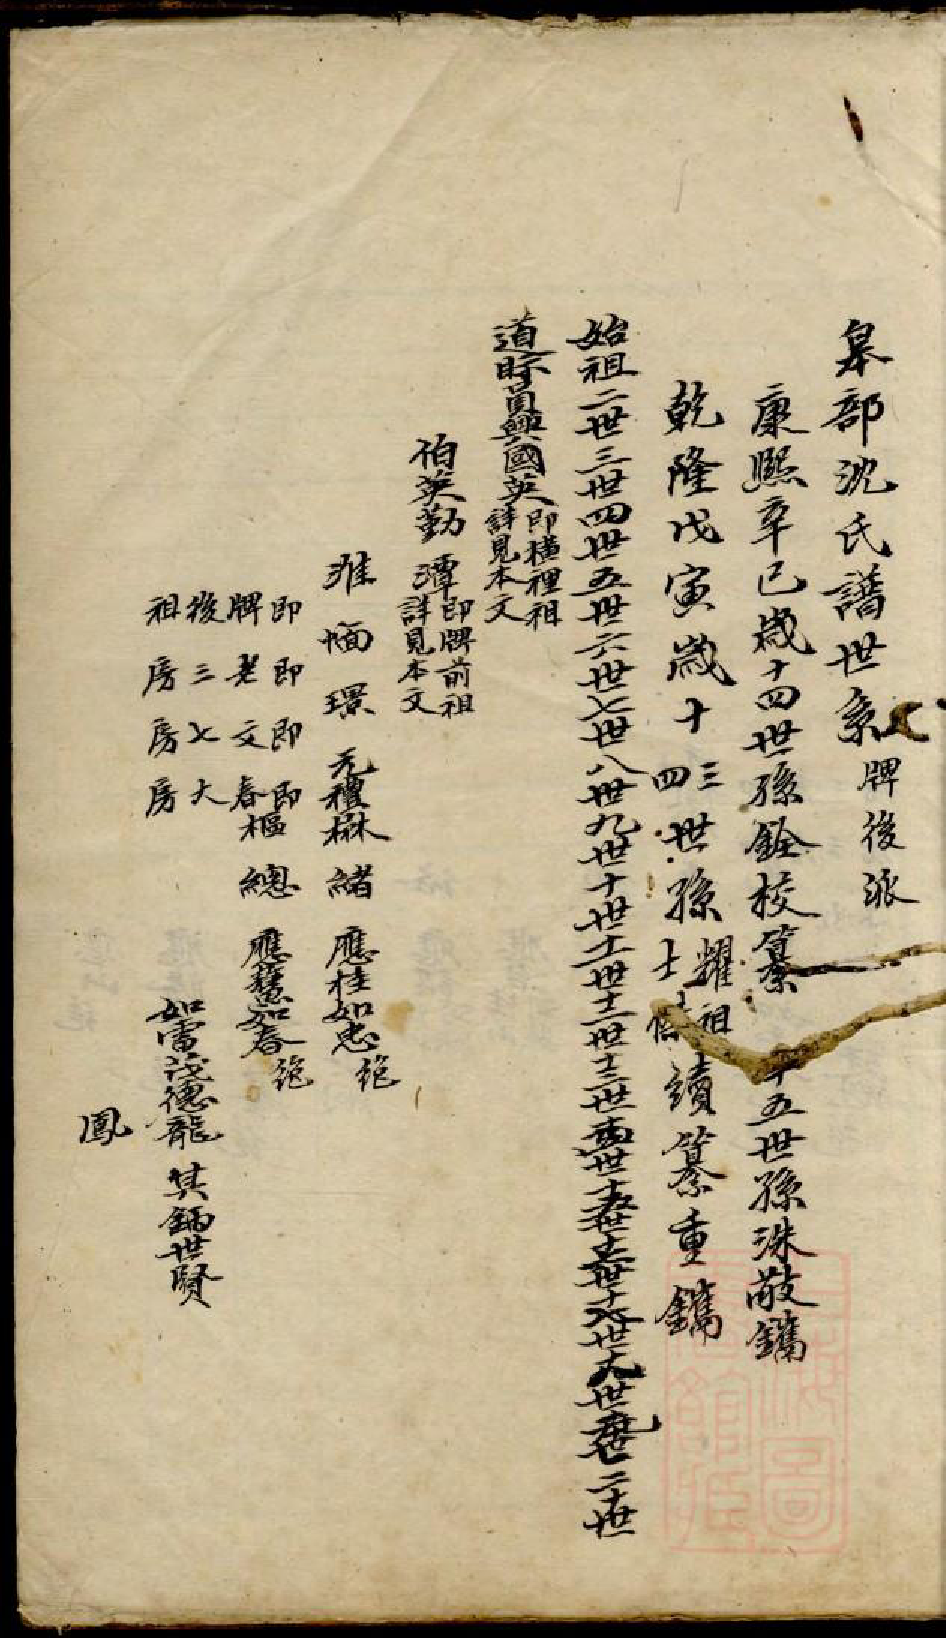 皋部沈氏譜世系 牌後派
康熙辛巳歲十四世孫銓校纂 十五世孫洙敬鐫
乾隆戊寅歲十三四世孫耀祖士 續纂重鐫
始祖二世三世四世五世六世七世八世九世十世十一世十二世十三世十四世十五世十六世十七世十八世十九世二十世
道 員興國英 即橫裡祖 詳見本文
伯英勤 潭 即牌前祖 詳見本文
淮 愐 璟 元禮楙 緒 應桂如忠 絶
即 即 即 即
牌 老 文 春樞 總 應 如春 絶
後 三 七 大
祖 房 房 房 如雷茂德龍 其 世賢
鳳